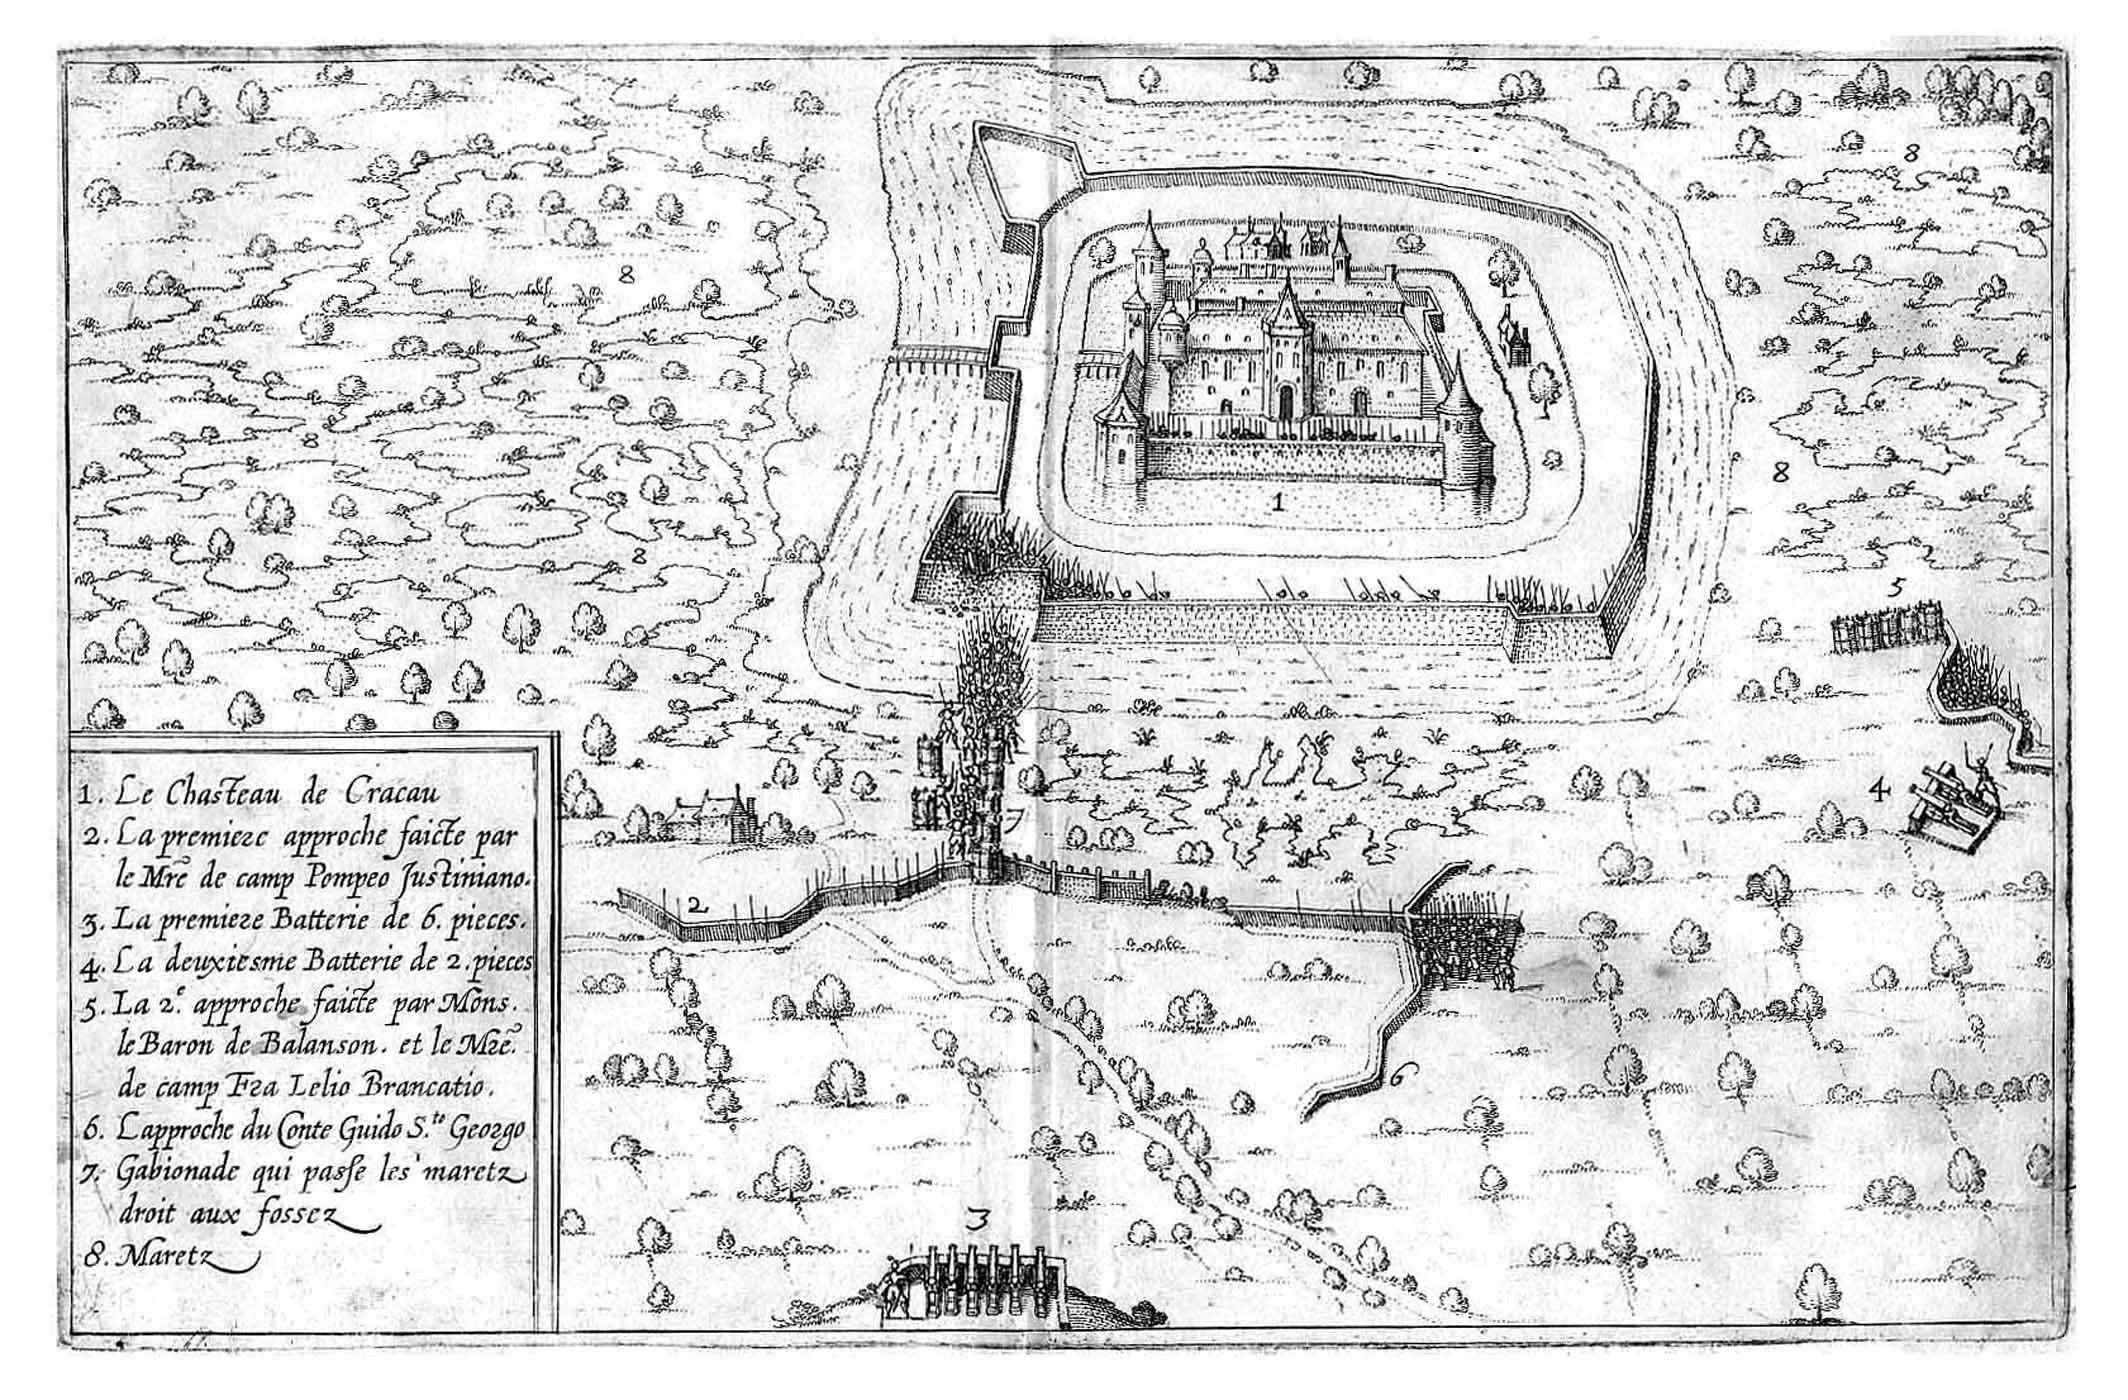 8
8
8
8
8
1
5
4
7
2
6
3
1. Le Chasteau de Cracau
2. La premiere approche faicte par
le Mr̃e de camp Pompeo Justiniano.
3. La premiere Batterie de 6. pieces.
4. La deuxiesme Batterie de 2. pieces
5. La 2.e approche faicte par Mons.
le Baron de Balanson. et le Mr̃e.
de camp Fra Lelio Brancatio.
6. Lapproche du Conte Guido S.to Georgo
7. Gabionade qui passe les maretz
droit aux fossez
8. Maretz